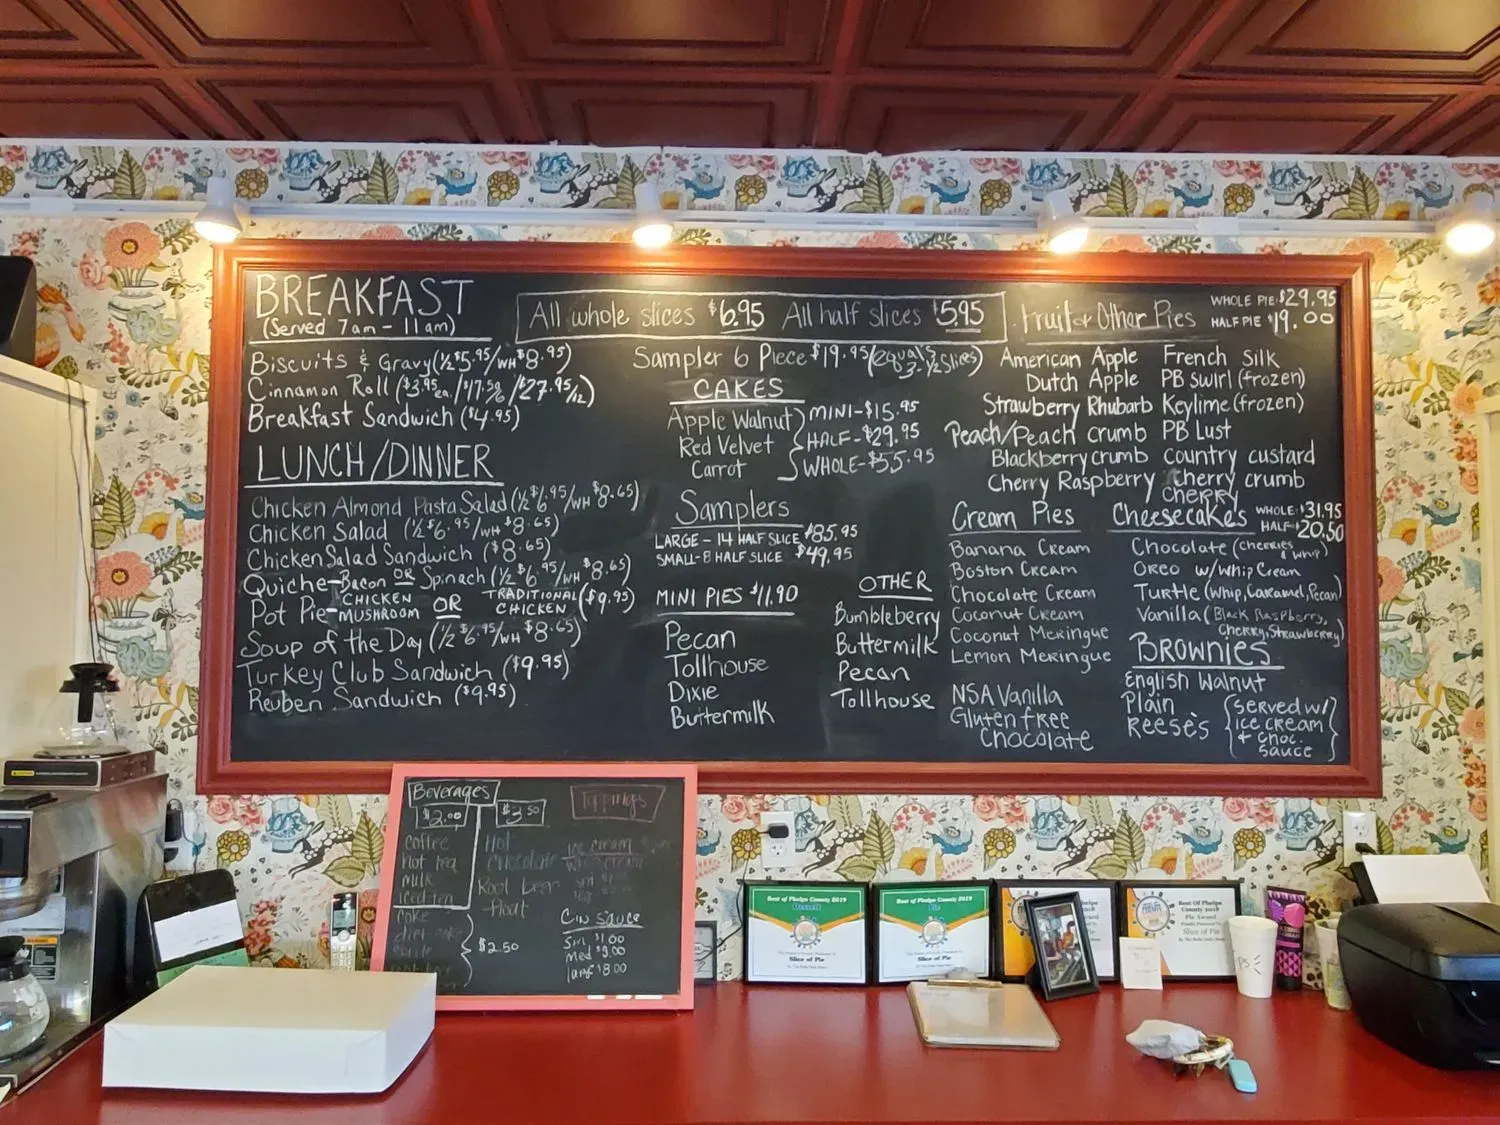 BREAKFAST
(Served 7am - 11am)
Biscuits & Gravy (½ $5.95/WH $8.95)
Cinnamon Roll ($3.95 ea./$17.50/6/$27.95/12)
Breakfast Sandwich ($4.95)
LUNCH/DINNER
Chicken Almond Pasta Salad (½ $6.95/WH $8.65)
Chicken Salad (½ $6.95/WH $8.65)
Chicken Salad Sandwich ($8.65)
Quiche - Bacon OR Spinach (½ $6.95/WH $8.65)
Pot Pie - CHICKEN MUSHROOM OR TRADITIONAL CHICKEN ($9.95)
Soup of the Day (½ $6.95/WH $8.65)
Turkey Club Sandwich ($9.95)
Reuben Sandwich ($9.95)
All whole slices $6.95 All half slices $5.95
Sampler 6 Piece $19.95 (equals 3-½ Slices)
CAKES
Apple Walnut
Red Velvet
Carrot
MINI-$15.95
HALF-$29.95
WHOLE-$55.95
Samplers
LARGE - 14 HALF SLICE $85.95
SMALL - 8 HALF SLICE $49.95
MINI PIES $11.90
Pecan
Tollhouse
Dixie
Buttermilk
OTHER
Bumbleberry
Buttermilk
Pecan
Tollhouse
Fruit or Other Pies
WHOLE PIE $29.95
HALF PIE $19.00
American Apple
Dutch Apple
Strawberry Rhubarb
Peach/Peach crumb
Blackberry crumb
Cherry Raspberry
French Silk
PB Swirl (frozen)
Keylime (frozen)
PB Lust
Country custard
Cherry crumb
Cherry
Cream Pies
Banana Cream
Boston Cream
Chocolate Cream
Coconut Cream
Coconut Meringue
Lemon Meringue
NSA Vanilla
Gluten free
Chocolate
Cheesecakes
WHOLE $31.95
HALF $20.50
Chocolate (cherries & whip)
Oreo w/whip Cream
Turtle (whip, Caramel, Pecan)
Vanilla (Black Raspberry,
Cherry, Strawberry)
BROWNIES
English Walnut
Plain
Reese's
(served w/
ice cream
+ choc.
sauce)
Beverages
$2.00
coffee
hot tea
milk
iced tea
coke
diet coke
$2.50
$3.50
Hot
Chocolate
Root beer
float
Toppings
ice cream
Cin sauce
Sm $1.00
Med $3.00
large $8.00
Best of Phelps County 2019
Dessert
Slice of Pie
Best of Phelps County 2019
Pie
Slice of Pie
Best Of Phelps
County 2018
Pie Award
Slice of Pie